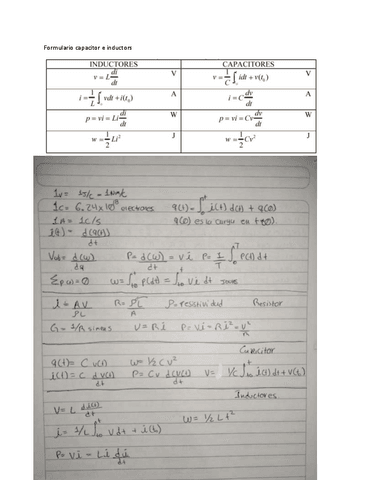 Formulario capacitor e inductors
INDUCTORES CAPACITORES
v = L di/dt V v = 1/C ∫ idt + v(t₀) V
i = 1/L ∫ vdt + i(t₀) A i = C dv/dt A
p = vi = Li di/dt W p = vi = Cv dv/dt W
w = 1/2 Li² J w = 1/2 Cv² J
1v = 1J/C = 1Nm/C
1C = 6.24x10¹⁸ electrones q(t) = ∫ i(t) d(t) + q(0)
1A = 1C/s q(0) es la carga en t=0.
i(t) = d(q(t))/dt
Vab = d(w)/dq P = d(w)/dt = Vi P = 1/T ∫₀ᵀ p(t) dt
Σp(t) = 0 w = ∫ p(dt) = ∫ Vi dt Joule
i = AV/ρL R = ρL/A ρ = resistividad Resistor
G = 1/R simens V = Ri P = Vi = Ri² = v²/R
Capacitor
q(t) = C v(t) w = 1/2 C v²
i(t) = C dv(t)/dt P = Cv d(v(t))/dt V = 1/C ∫ i(t) dt + v(t₀)
Inductores
V = L di(t)/dt w = 1/2 L i²
i = 1/L ∫ v dt + i(t₀)
P = Vi = Li di/dt